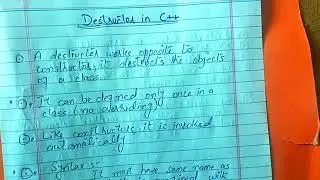 Destructor in C++
A destructor works opposite to
constructor, it destructs the objects
of a class.
It can be defined only once in a
class (no overriding)
Like constructor, it is invoked
automatically
Syntax :-
It must have same name as
with